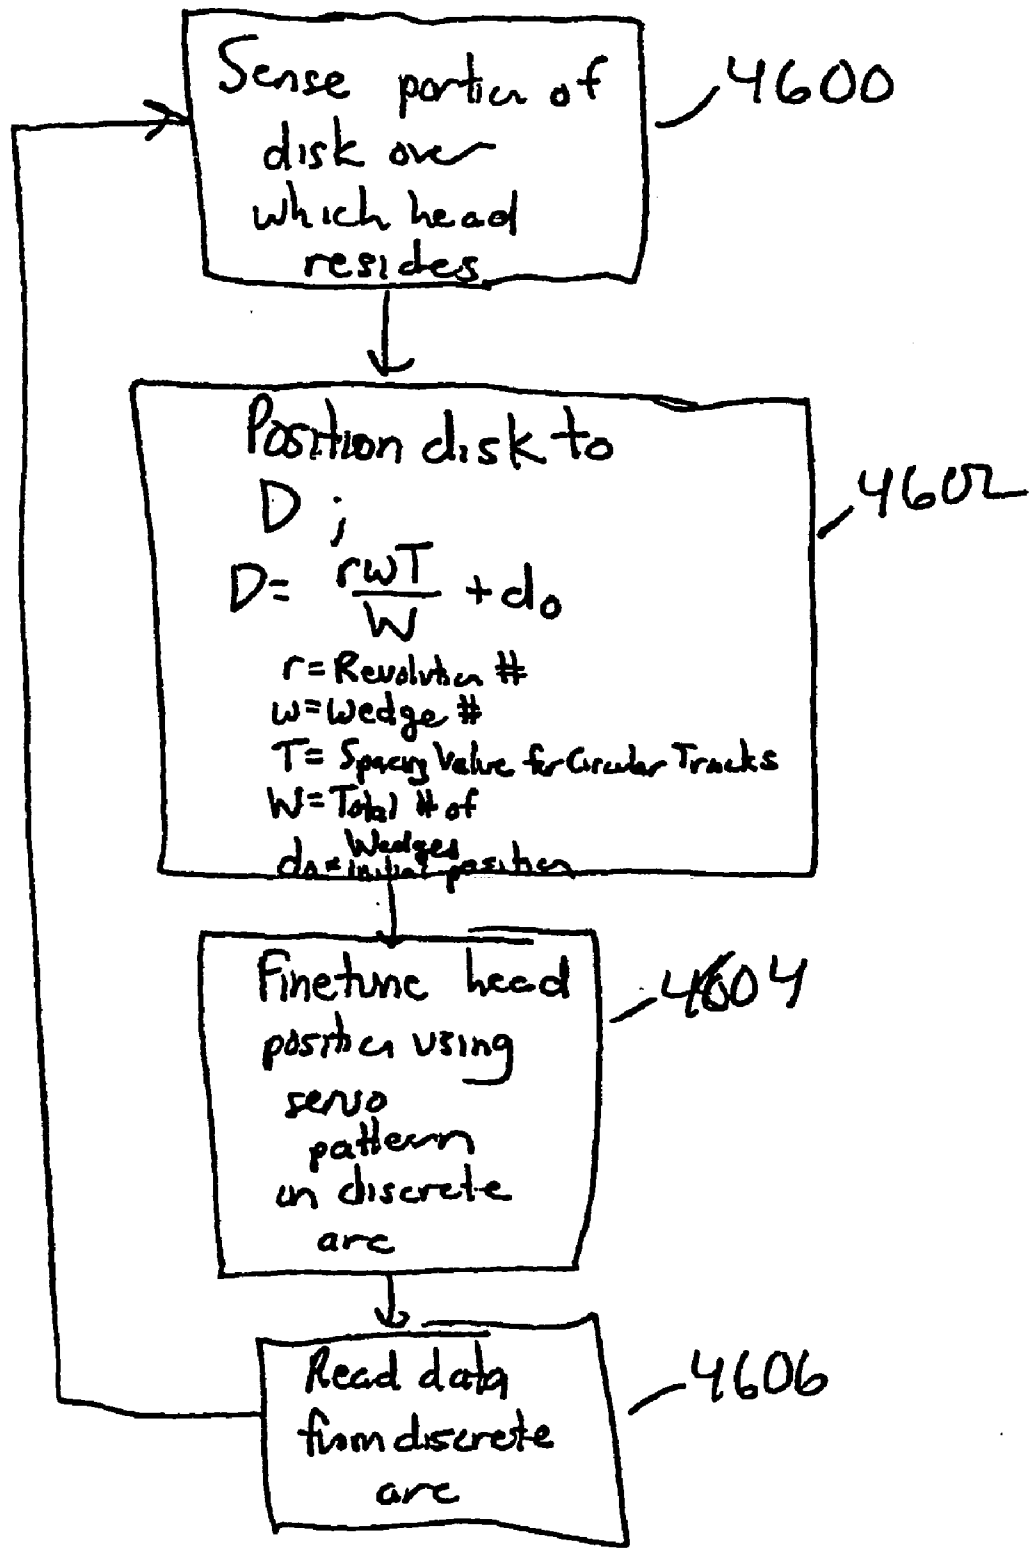 Sense portion of
disk over
which head
resides
4600
Position disk to
D ;
D = rwT/W + do
r = Revolution #
w = Wedge #
T = Spacing Value for Circular Tracks
W = Total # of
Wedges
do = initial position
4602
Finetune head
position using
servo
pattern
on discrete
arc
4604
Read data
from discrete
arc
4606